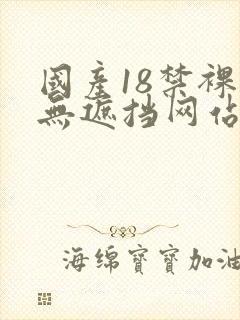 國產18禁裸
無遮挡网佔
海绵寶寶加油